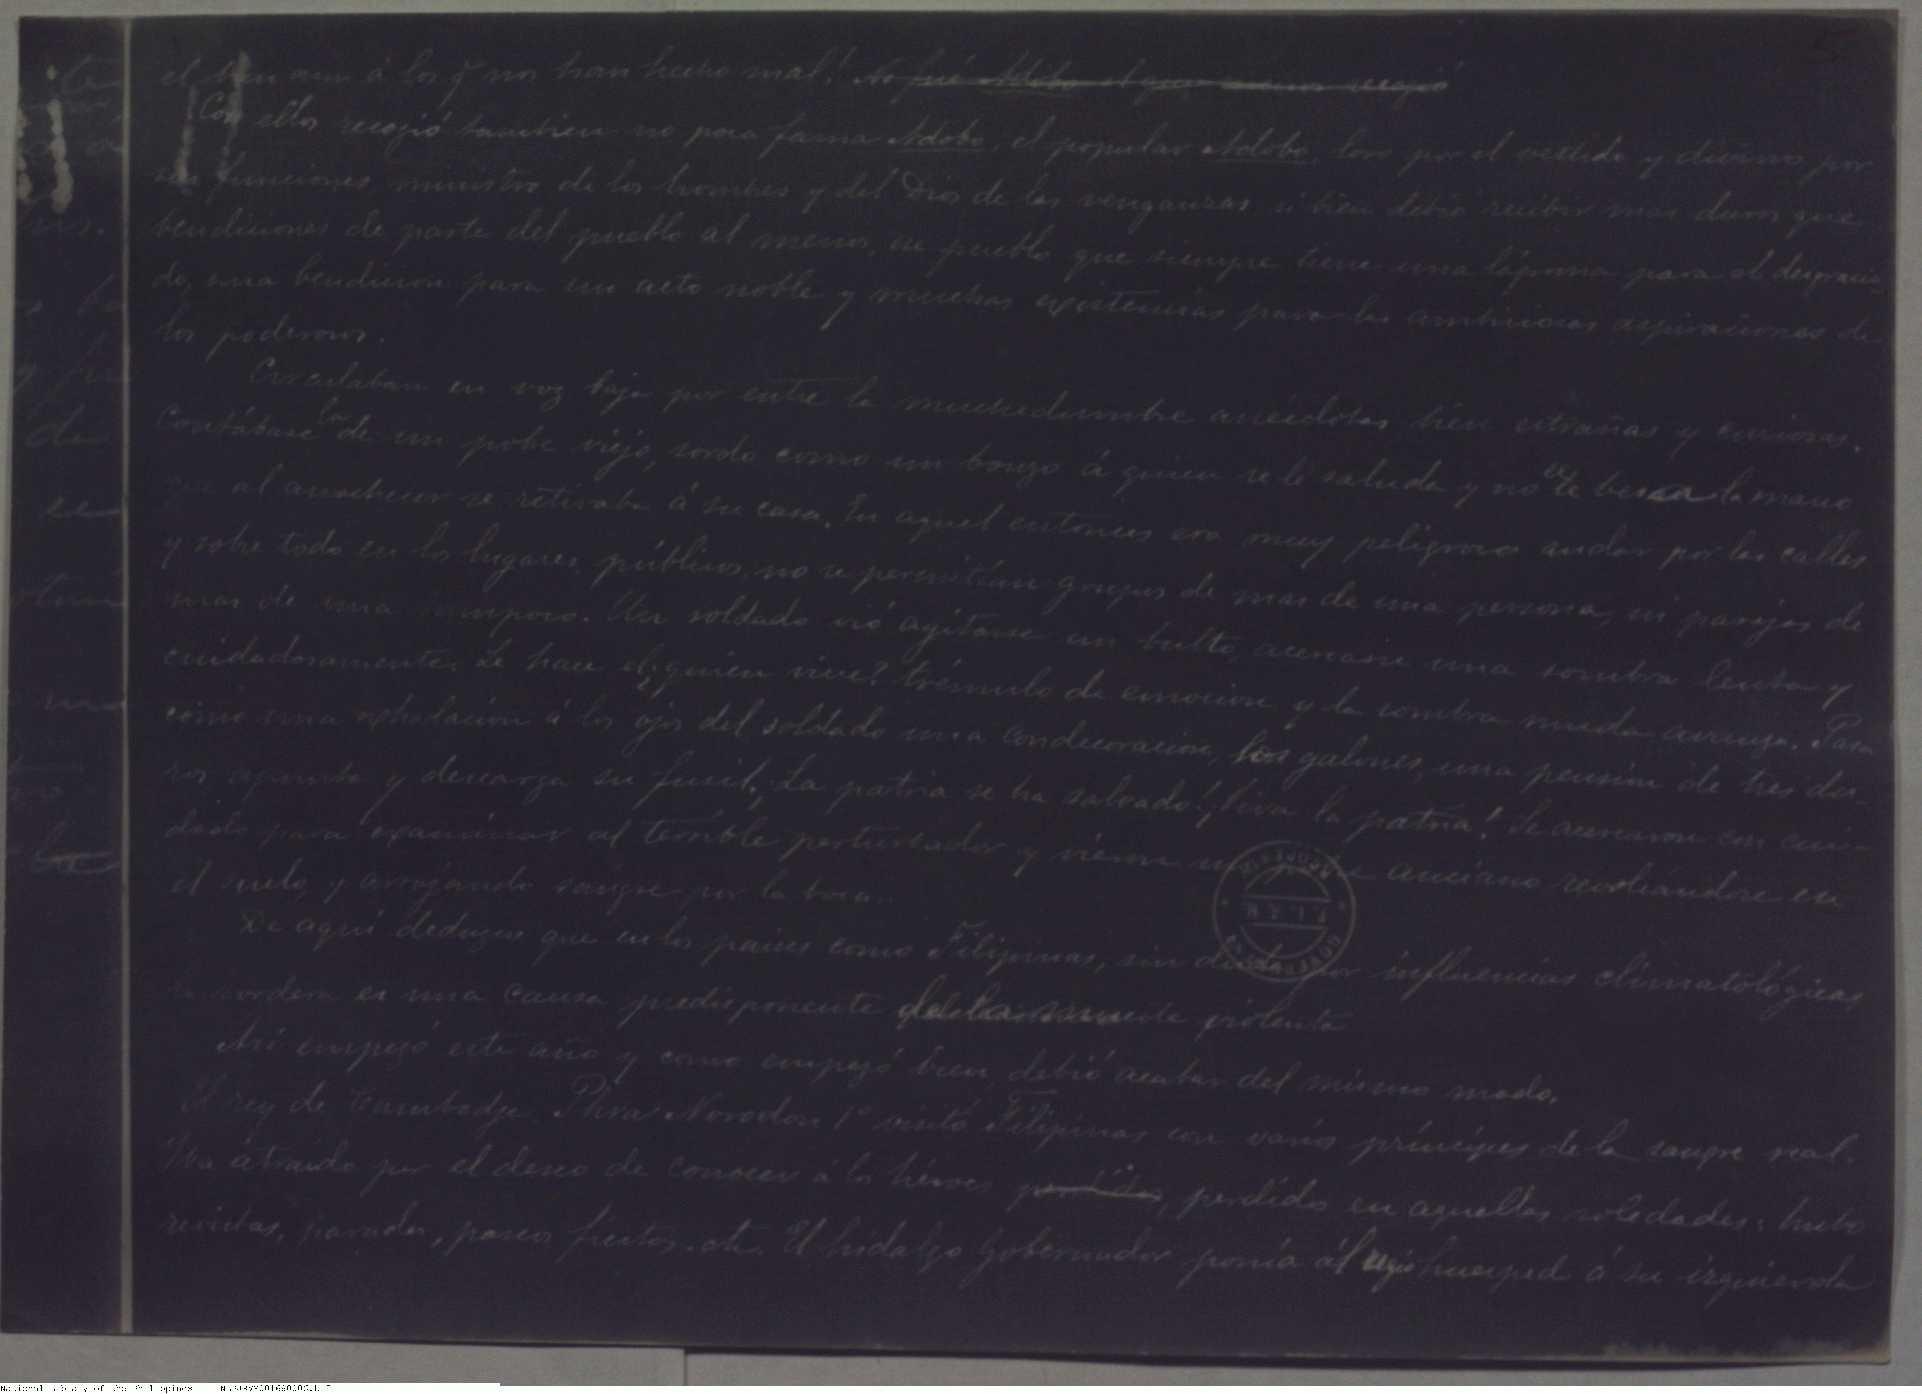 5
el bien aun á los q nos han hecho mal! No fué Adobo el que menos recogió
Con ellos recogió tambien no poca fama Adobo, el popular Adobo, loro por el vestido y divino por
sus funciones ministro de los hombres y del Dios de las venganzas si bien debió recibir mas duros que
bendiciones de parte del pueblo al menos, un pueblo que siempre tiene una lágrima para el desgracia-
do, una bendicion para un acto noble y muchas existencias para las ambiciosas aspiraciones de
los poderosos.
Circulaban en voz baja por entre la muchedumbre anécdotas bien estrañas y curiosas.
Contábase la de un pobre viejo, sordo como un bonzo á quien se le saluda y no se le besa la mano
que al anochecer se retiraba á su casa. En aquel entonces era muy peligroso andar por las calles
y sobre todo en los lugares públicos, no se permitían grupos de mas de una persona, ni parejas de
mas de una tampoco. Un soldado vió agitarse un bulto, acercarse una sombra lenta y
cuidadosamente. Le hace el ¿quién vive? trémulo de emocion y la sombra muda avanza. Pasa
como una exhalacion á los ojos del soldado una condecoracion, los galones, una pension de tres du-
ros apunta y descarga su fusil. ¡La patria se ha salvado! ¡Viva la patria! Se acercaron con cui-
dado para examinar al terrible perturbador y vieron un pobre anciano revolcándose en
el suelo, y arrojando sangre por la boca..
De aquí deduzco que en los paises como Filipinas, sin duda por influencias climatológicas
la sordera es una causa predisponente de la muerte violenta
Así empezó este año y como empezó bien debió acabar del mismo modo.
El rey de Cambodge Phra Norodon 1º visitó Filipinas con varios príncipes de la sangre real.
Iba atraido por el deseo de conocer á los héroes perdidos, perdido en aquellas soledades: hubo
revistas, paradas, paseos fiestas etc. El hidalgo Gobernador ponía al regio huesped á su izquierda
National Library of the Philippines